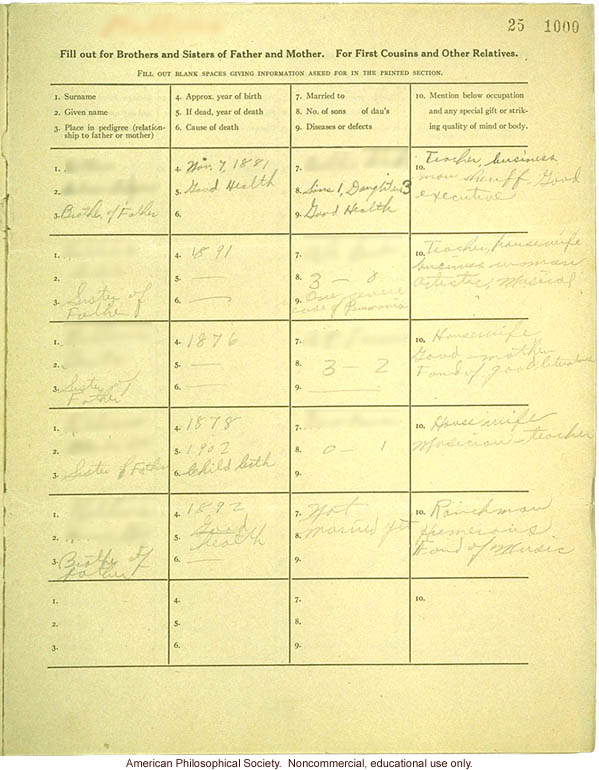 25 1000
Fill out for Brothers and Sisters of Father and Mother. For First Cousins and Other Relatives.
Fill out blank spaces giving information asked for in the printed section.
1. Surname
2. Given name
3. Place in pedigree (relation-
ship to father or mother)
4. Approx. year of birth
5. If dead, year of death
6. Cause of death
7. Married to
8. No. of sons of dau's
9. Diseases or defects
10. Mention below occupation
and any special gift or strik-
ing quality of mind or body.
1.
2.
3. Brother of Father
4. Nov 7, 1881
5. Good Health
6.
7.
8. Sons 1, Daughters 3
9. Good Health
10. Teacher, business
man sheriff Good
executive
1.
2.
3. Sister of
Father
4. 1891
5. —
6. —
7.
8. 3 - 0
9. One severe
case of Pneumonia
10. Teacher, housewife
business woman
Artistic, Musical
1.
2.
3. Sister of
Father
4. 1876
5. —
6. —
7.
8. 3 - 2
9. —
10. Housewife
Good mother
Fond of good literature
1.
2.
3. Sister of Father
4. 1878
5. 1902
6. Child birth
7.
8. 0 - 1
9.
10. House wife
Musician - teacher
1.
2.
3. Brother of
Father
4. 1892
5. Good
Health
6. —
7. Not
8. married yet
9.
10. Ranchman
Humerous
Fond of Music
1.
2.
3.
4.
5.
6.
7.
8.
9.
10.
American Philosophical Society. Noncommercial, educational use only.